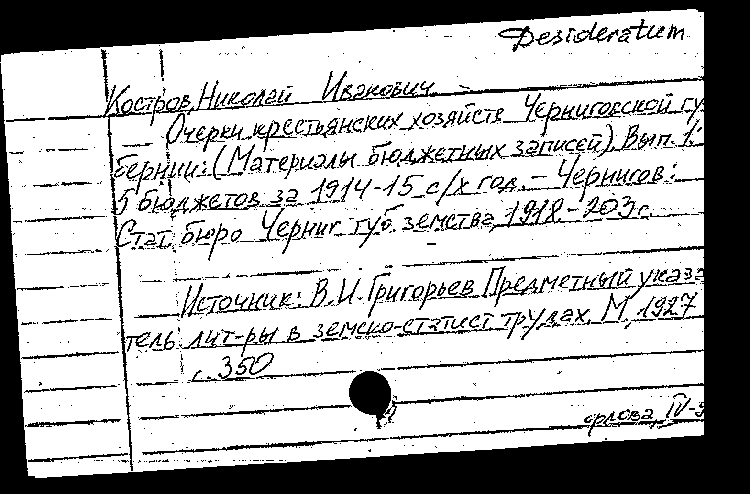 Desideratum
Костров, Николай Иванович.
Очерки крестьянских хозяйств Черниговской гу
бернии: (Материалы бюджетных записей). Вып. 1:
5 бюджетов за 1914-15 с/х год. – Чернигов:
Стат. бюро Черниг. губ. земства, 1918 – 203 с.
Источник: В.И. Григорьев Предметный указа
тель лит-ры в земско-статист трудах. М, 1927
с. 350
орлова, IV-